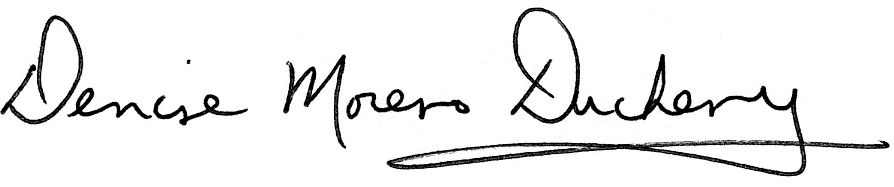 Denise Moreno Ducheny